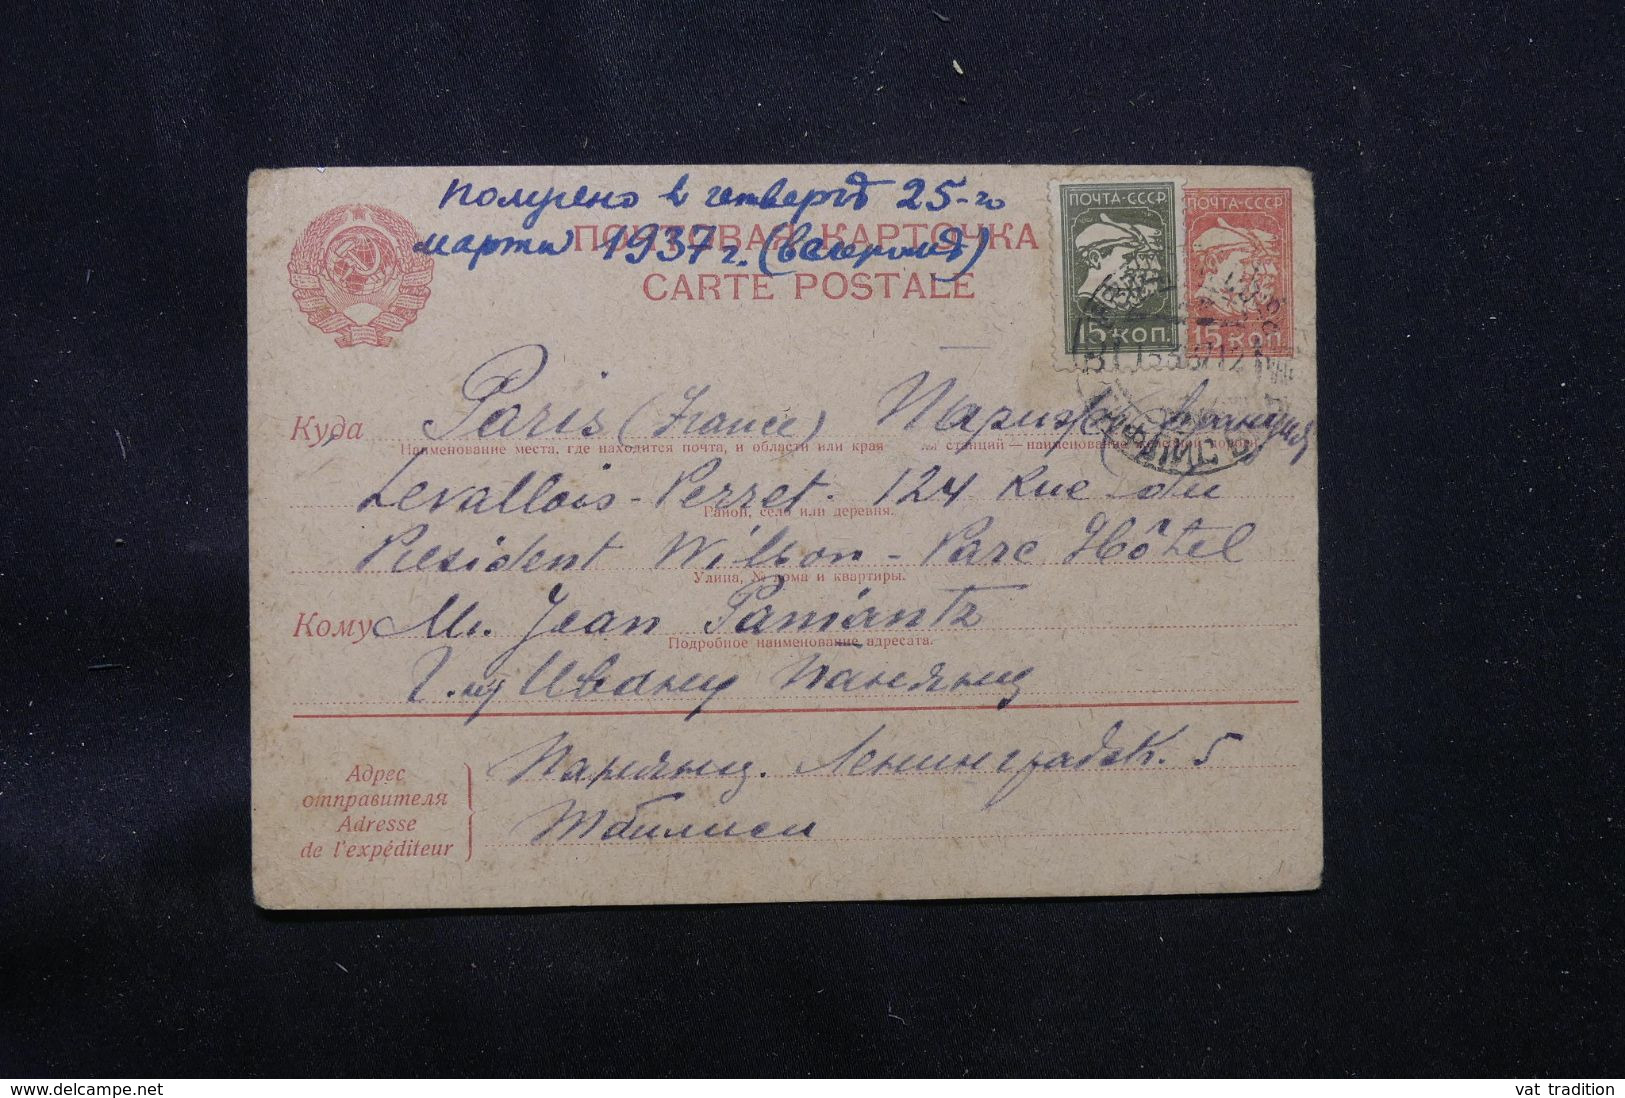 получено в четвергъ 25-го
марта 1937 г. (вечеромъ)
ПОЧТОВАЯ КАРТОЧКА
CARTE POSTALE
ПОЧТА-СССР
15 КОП.
ПОЧТА-СССР
15 КОП.
Куда Paris (France) Париж Франция
Наименование места, где находится почта, и области или края станций—наименование
Levallois-Perret. 124 Rue du
Район, село или деревня.
President Wilson - Parc Hôtel
Улица, № дома и квартиры.
Кому Mr. Jean Paniantz
Подробное наименование адресата.
Г-ну Ивану Паняянц
Адрес
отправителя
Adresse
de l'expéditeur
Паняянц. Ленинградск. 5
Тбилиси
www.delcampe.net
vat tradition